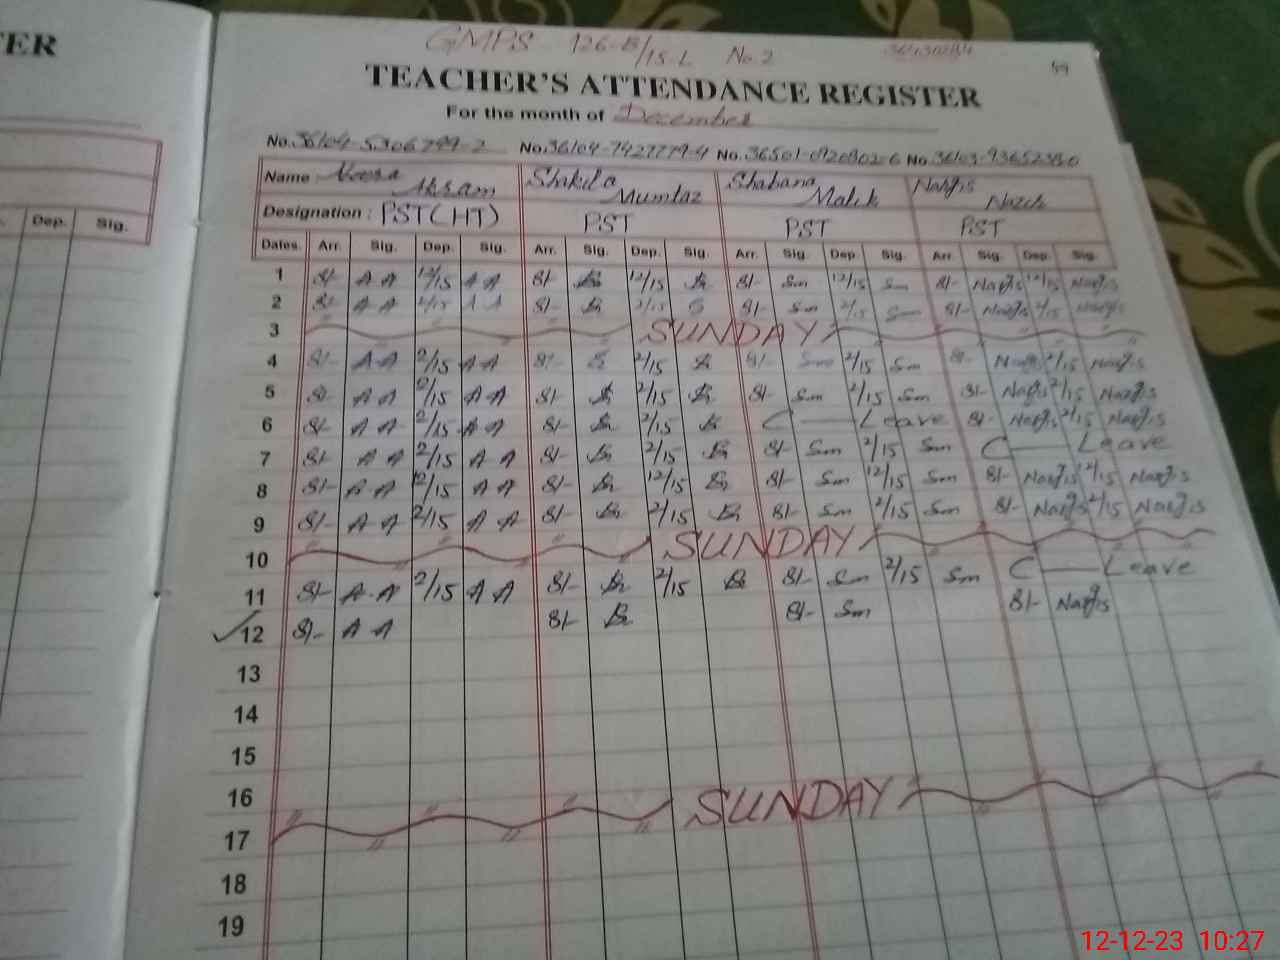 ER
GMPS 126-B/15-L No. 2 36430284 49
TEACHER'S ATTENDANCE REGISTER
For the month of December
No. 36104-5306799-2 No. 36104-7427779-4 No. 36501-0920802-6 No. 36103-9365238-0
Name Akram Shakila Mumtaz Shabana Malik Nargis
Designation : PST(HT) PST PST PST
Dep. Sig.
Dates. Arr. Sig. Dep. Sig. Arr. Sig. Dep. Sig. Arr. Sig. Dep. Sig. Arr. Sig. Dep. Sig.
1 8/- A A 12/15 A A 8/- 12/15 8/- Sm 12/15 Sm 8/- Nargis 12/15 Nargis
2 8/- A A 2/15 A A 8/- 2/15 8/- Sm 2/15 Sm 8/- Nargis 2/ Nargis
3 SUNDAY
4 8/- A A 2/15 A A 8/- 2/15 8/- Sm 2/15 Sm 8/- Nargis 2/15 Nargis
5 8/- A A 2/15 A A 8/- 2/15 8/- Sm 2/15 Sm 8/- Nargis 2/15 Nargis
6 8/- A A 2/15 A A 8/- 2/15 C Leave 8/- Nargis 2/15 Nargis
7 8/- A A 2/15 A A 8/- 2/15 8/- Sm 2/15 Sm C Leave
8 8/- A A 12/15 A A 8/- 12/15 8/- Sm 12/15 Sm 8/- Nargis 12/15 Nargis
9 8/- A A 2/15 A A 8/- 2/15 8/- Sm 2/15 Sm 8/- Nargis 2/15 Nargis
10 SUNDAY
11 8/- A A 2/15 A A 8/- 2/15 8/- Sm 2/15 Sm C Leave
12 8/- A A 8/- 8/- Sm 8/- Nargis
13
14
15
16
17 SUNDAY
18
19
12-12-23 10:27